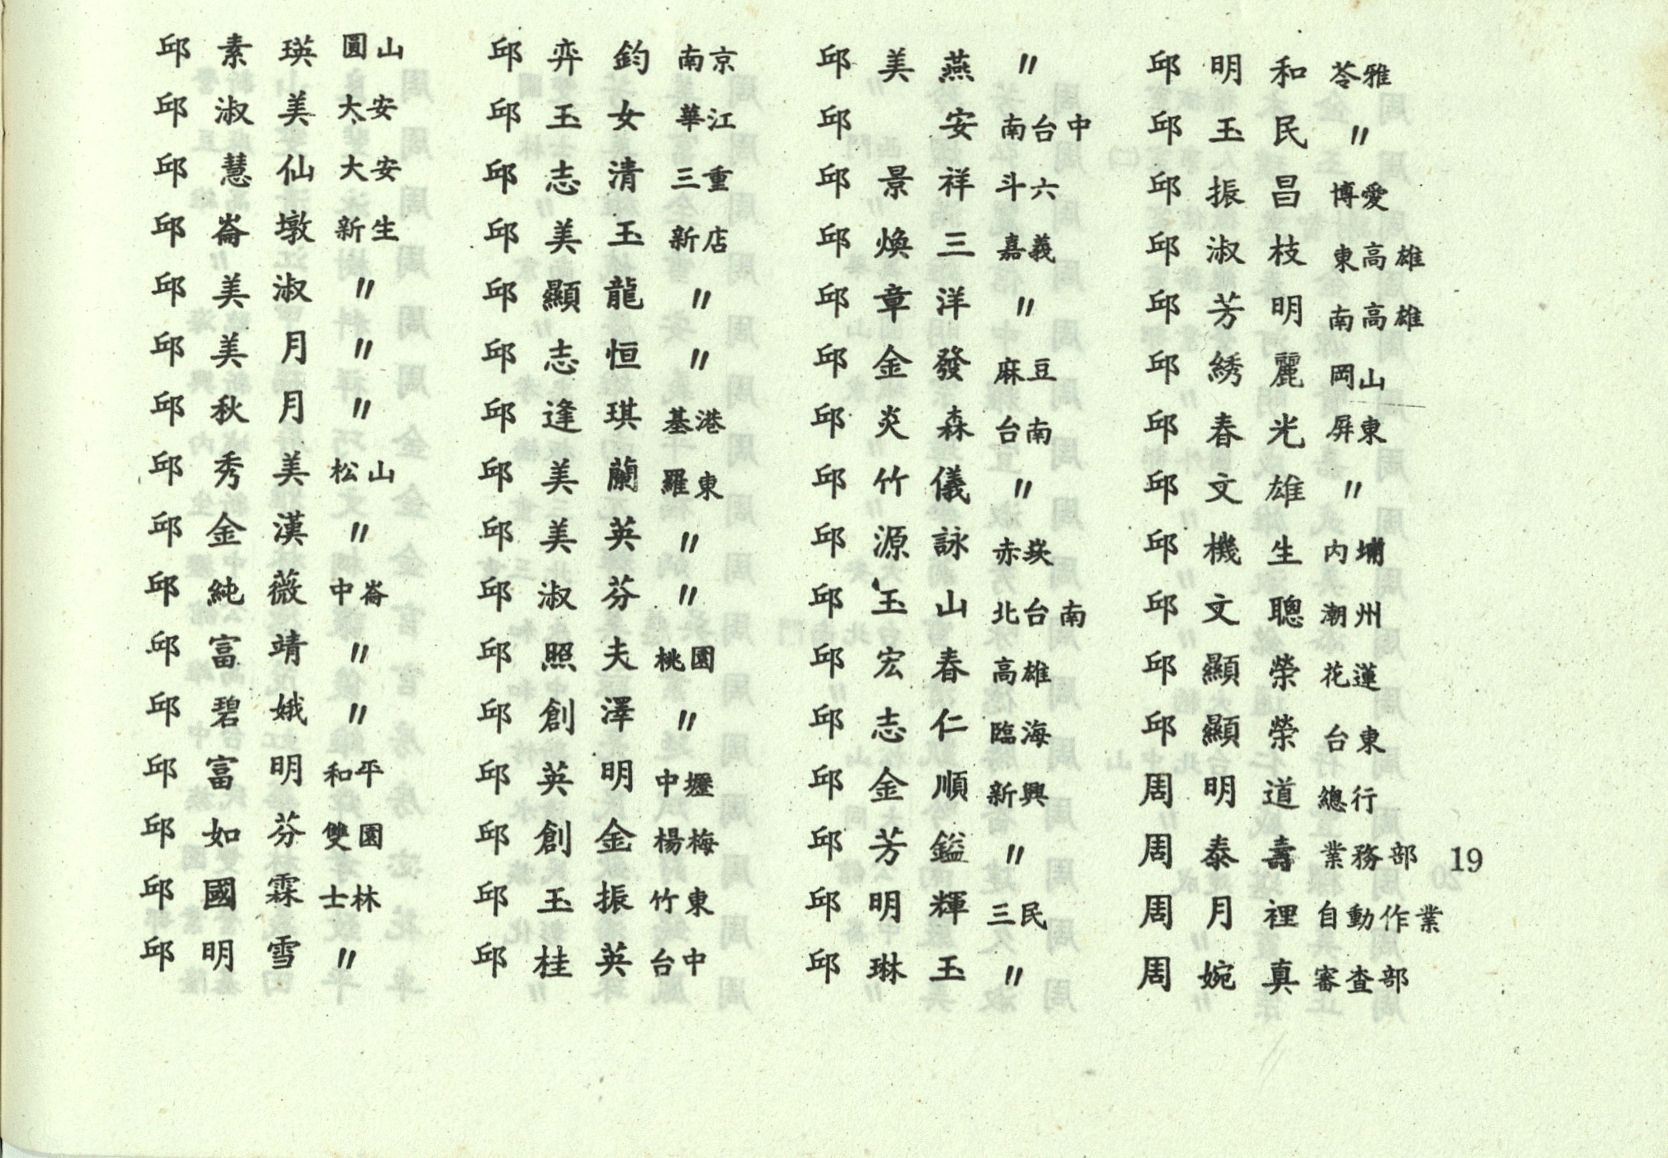 邱素瑛 圓山
邱淑美 大安
邱慧仙 大安
邱崙墩 新生
邱美淑 〃
邱美月 〃
邱秋月 〃
邱秀美 松山
邱金漢 〃
邱純薇 中崙
邱富靖 〃
邱碧娥 〃
邱富明 和平
邱如芬 雙園
邱國霖 士林
邱明雪 〃
邱弈鈞 南京
邱玉女 華江
邱志清 三重
邱美玉 新店
邱顯龍 〃
邱志恒 〃
邱逢琪 基港
邱美蘭 羅東
邱美英 〃
邱淑芬 〃
邱照夫 桃園
邱創澤 〃
邱英明 中壢
邱創金 楊梅
邱玉振 竹東
邱桂英 台中
邱美燕 〃
邱安 南台中
邱景祥 斗六
邱煥三 嘉義
邱章洋 〃
邱金發 麻豆
邱炎森 台南
邱竹儀 〃
邱源詠 赤崁
邱玉山 北台南
邱宏春 高雄
邱志仁 臨海
邱金順 新興
邱芳鎰 〃
邱明輝 三民
邱琳玉 〃
邱明和 苓雅
邱玉民 〃
邱振昌 博愛
邱淑枝 東高雄
邱芳明 南高雄
邱綉麗 岡山
邱春光 屏東
邱文雄 〃
邱機生 內埔
邱文聰 潮州
邱顯榮 花蓮
邱顯榮 台東
周明道 總行
周泰壽 業務部
周月裡 自動作業
周婉真 審查部
19